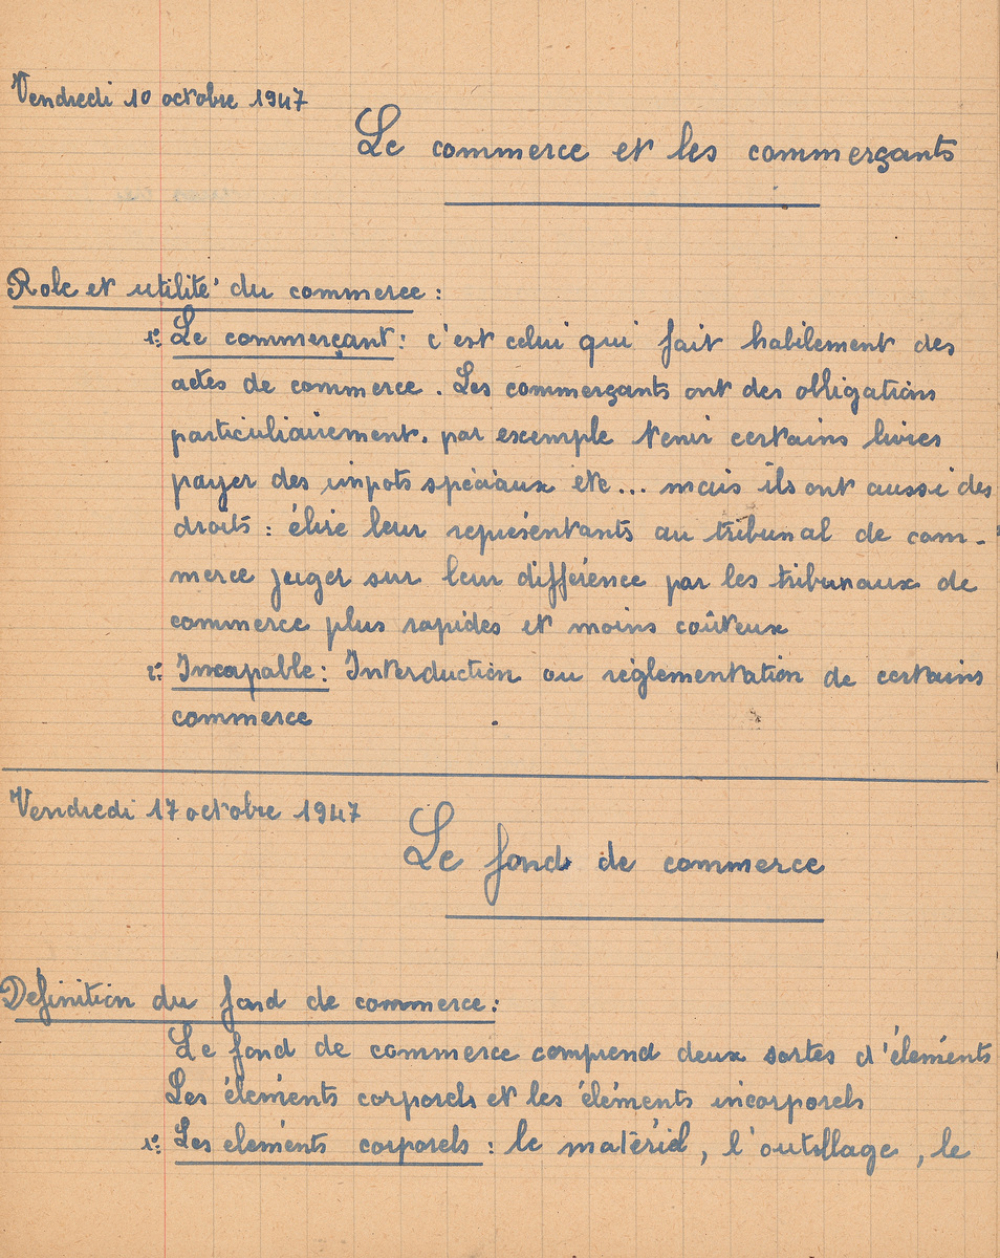 Vendredi 10 octobre 1947
Le commerce et les commerçants
Role et utilité du commerce :
1° Le commerçant : c'est celui qui fait habilement des
actes de commerce. Les commerçants ont des obligations
particuliairement. par exemple tenir certains livres
payer des impots spéciaux etc... mais ils ont aussi des
droits : élire leur représentants au tribunal de com-
merce juger sur leur différence par les tribunaux de
commerce plus rapides et moins coûteux
2° Incapable : Interduction ou réglementation de certains
commerce
Vendredi 17 octobre 1947
Le fond de commerce
Definition du fond de commerce :
Le fond de commerce comprend deux sortes d'éleménts
Les éleménts corporels et les éléménts incorporels
1° Les elements corporels : le matériel, l'outillage, le